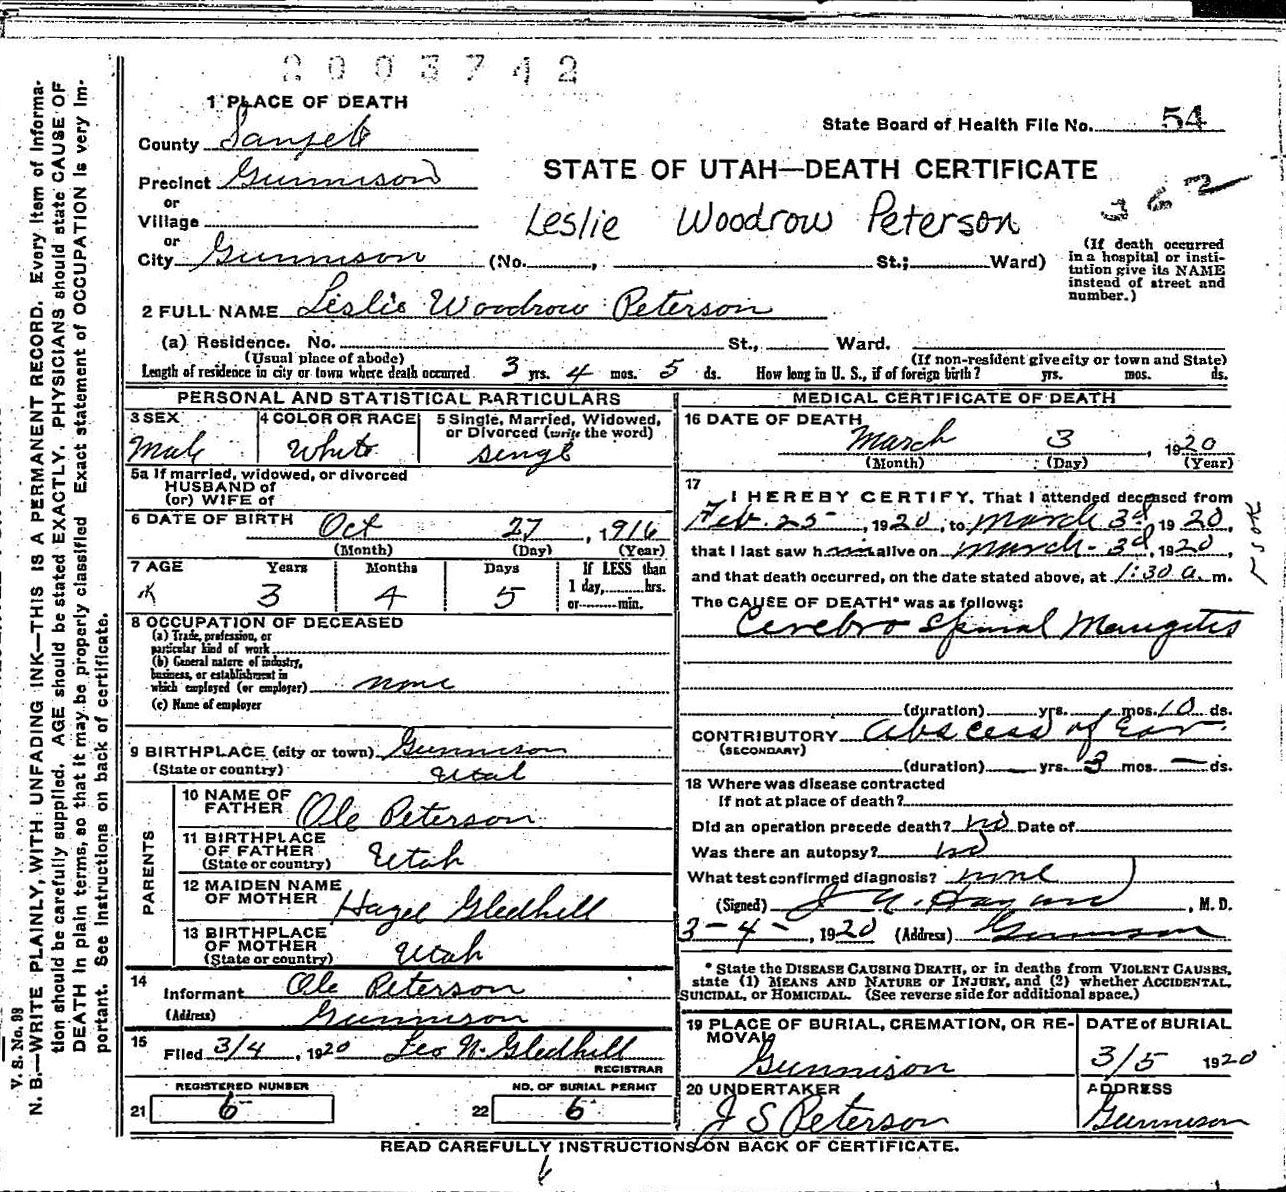 2003742
1 PLACE OF DEATH
State Board of Health File No. 54
County Sanpete
STATE OF UTAH—DEATH CERTIFICATE
Precinct Gunnison
362
or
Village
Leslie Woodrow Peterson
or
City Gunnison (No. , St.; Ward)
(If death occurred
in a hospital or insti-
tution give its NAME
instead of street and
number.)
2 FULL NAME Leslie Woodrow Peterson
(a) Residence. No. St., Ward.
(Usual place of abode) (If non-resident give city or town and State)
Length of residence in city or town where death occurred 3 yrs. 4 mos. 5 ds. How long in U. S., if of foreign birth? yrs. mos. ds.
PERSONAL AND STATISTICAL PARTICULARS
3 SEX
Male
4 COLOR OR RACE
White
5 Single, Married, Widowed,
or Divorced (write the word)
Single
5a If married, widowed, or divorced
HUSBAND of
(or) WIFE of
6 DATE OF BIRTH Oct 27, 1916
(Month) (Day) (Year)
7 AGE Years Months Days If LESS than
1 day, hrs.
3 4 5 or min.
8 OCCUPATION OF DECEASED
(a) Trade, profession, or
particular kind of work
(b) General nature of industry,
business, or establishment in
which employed (or employer) none
(c) Name of employer
9 BIRTHPLACE (city or town) Gunnison
(State or country) Utah
PARENTS
10 NAME OF
FATHER Ole Peterson
11 BIRTHPLACE
OF FATHER
(State or country) Utah
12 MAIDEN NAME
OF MOTHER Hazel Gledhill
13 BIRTHPLACE
OF MOTHER
(State or country) Utah
14
Informant Ole Peterson
(Address) Gunnison
15
Filed 3/4, 1920 Leo N. Gledhill
REGISTRAR
REGISTERED NUMBER NO. OF BURIAL PERMIT
21 6 22 6
MEDICAL CERTIFICATE OF DEATH
16 DATE OF DEATH
March 3, 1920
(Month) (Day) (Year)
17
I HEREBY CERTIFY, That I attended deceased from
Feb. 25, 1920, to March 3d, 1920,
that I last saw him alive on March 3d, 1920
and that death occurred, on the date stated above, at 1:30 a. m.
The CAUSE OF DEATH* was as follows:
Cerebro Spinal Menigitis
(duration) yrs. mos. 10 ds.
CONTRIBUTORY Abscess of Ear
(SECONDARY)
(duration) — yrs. 3 mos. — ds.
18 Where was disease contracted
If not at place of death?
Did an operation precede death? no Date of
Was there an autopsy? no
What test confirmed diagnosis? none
(Signed) , M. D.
3-4-, 1920 (Address) Gunnison
* State the DISEASE CAUSING DEATH, or in deaths from VIOLENT CAUSES,
state (1) MEANS AND NATURE OF INJURY, and (2) whether ACCIDENTAL,
SUICIDAL, or HOMICIDAL. (See reverse side for additional space.)
19 PLACE OF BURIAL, CREMATION, OR RE-
MOVAL
Gunnison
DATE of BURIAL
3/5 1920
20 UNDERTAKER
J S Peterson
ADDRESS
Gunnison
READ CAREFULLY INSTRUCTIONS ON BACK OF CERTIFICATE.
V. S. No. 98
N. B.—WRITE PLAINLY, WITH UNFADING INK—THIS IS A PERMANENT RECORD. Every item of informa-
tion should be carefully supplied. AGE should be stated EXACTLY. PHYSICIANS should state CAUSE OF
DEATH in plain terms, so that it may be properly classified. Exact statement of OCCUPATION is very im-
portant. See instructions on back of certificate.